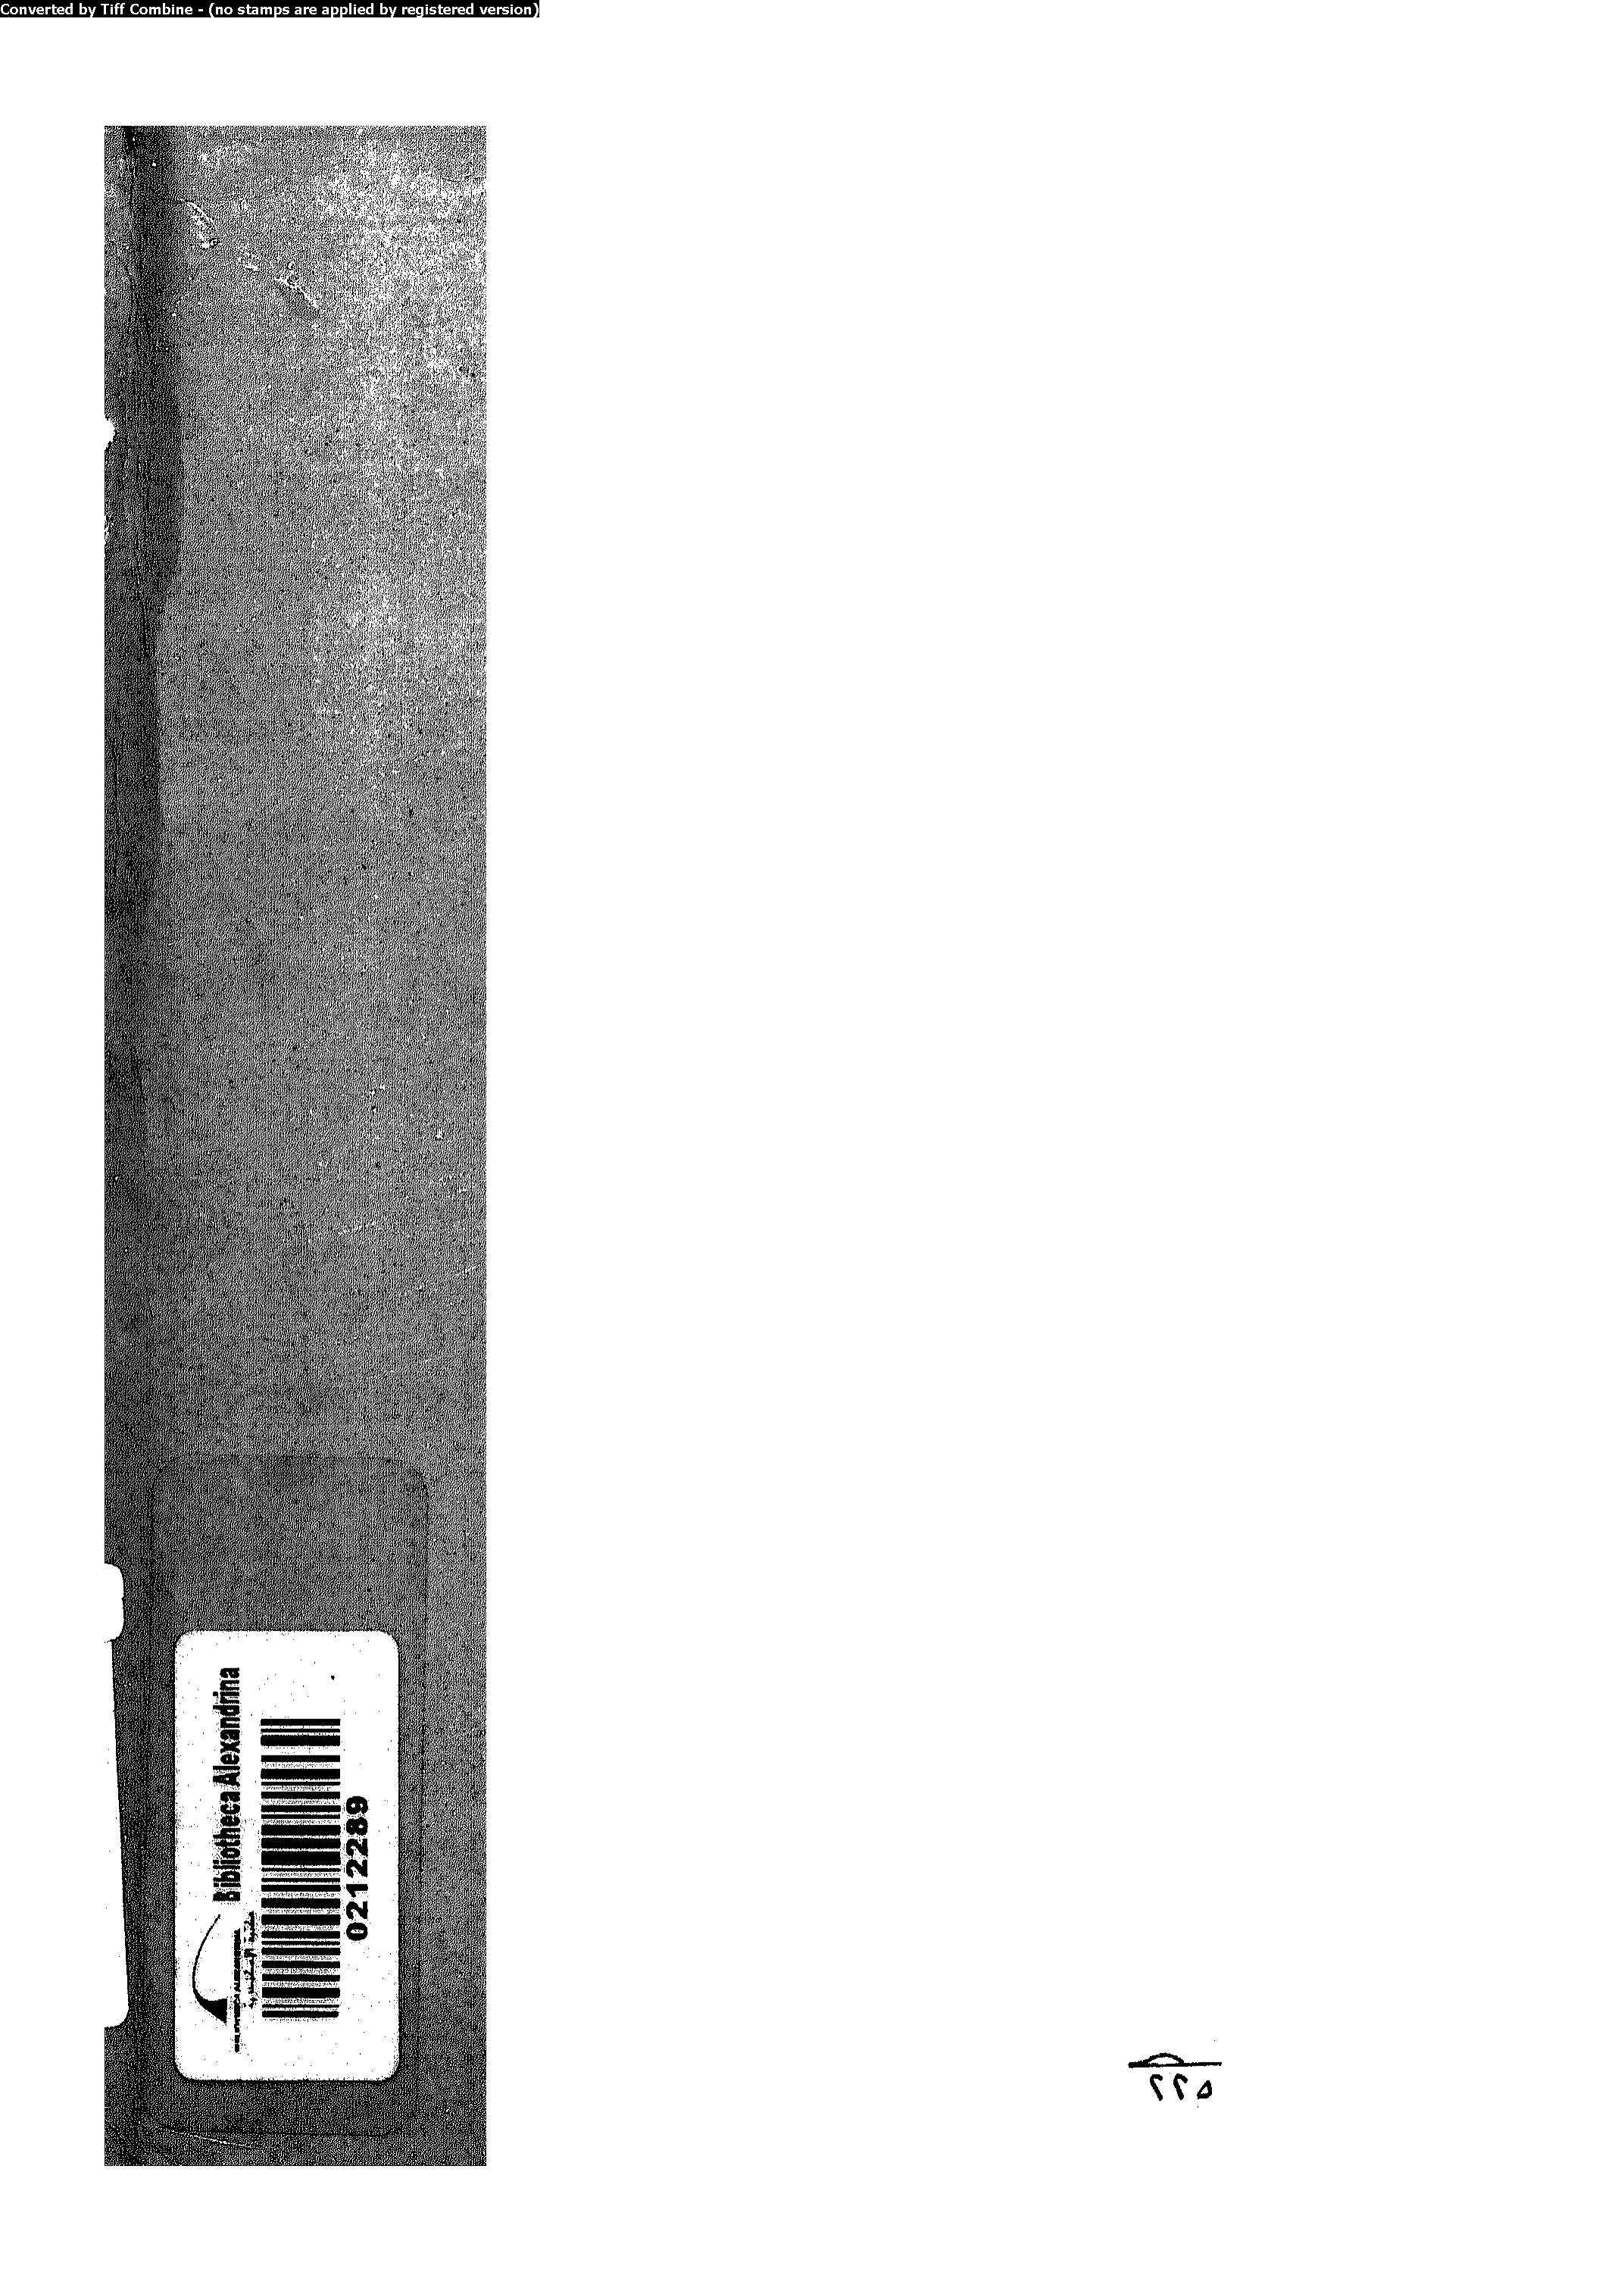 Converted by Tiff Combine - (no stamps are applied by registered version)
Bibliotheca Alexandrina
0212289
٢٢٥